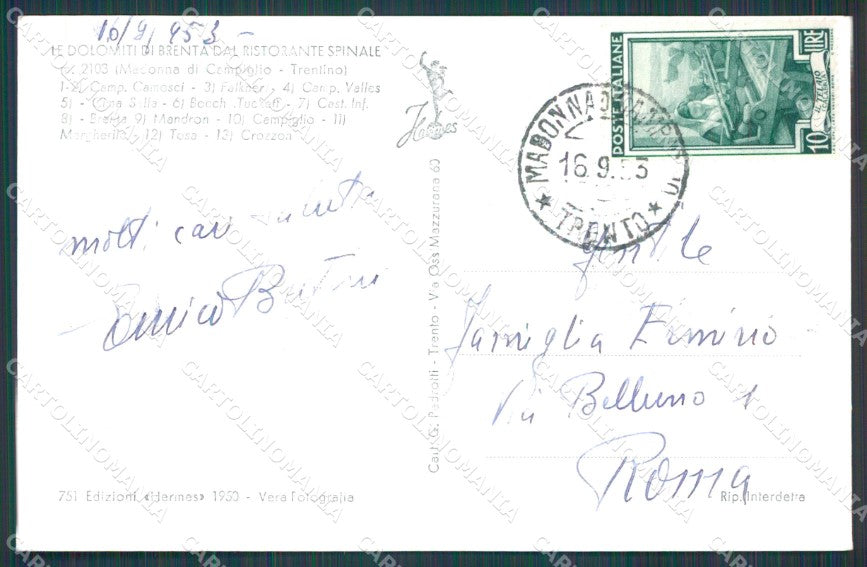 16/9/953 -
LE DOLOMITI DI BRENTA DAL RISTORANTE SPINALE
m. 2103 (Madonna di Campiglio - Trentino)
1-2) Camp. Camosci - 3) Falkner - 4) Camp. Valles
5) - Cima Sella - 6) Bocch. Tuckett - 7) Cast. Inf.
8) - Brenta 9) Mandron - 10) Campiglio - 11)
Margherita - 12) Tosa - 13) Crozzon
Hermes
POSTE ITALIANE
LIRE
10
IL TELAIO
MADONNA
16.9.53
TRENTO
molti cari saluti
Enrico
Gentile
Famiglia Erminio
Via Belluno 1
Roma
Cart. G. Pedrotti - Trento - Via Oss Mazzurana 60
751 Edizioni «Hermes» 1950 - Vera Fotografia
Rip. Interdetta
CARTOLINOMANIA